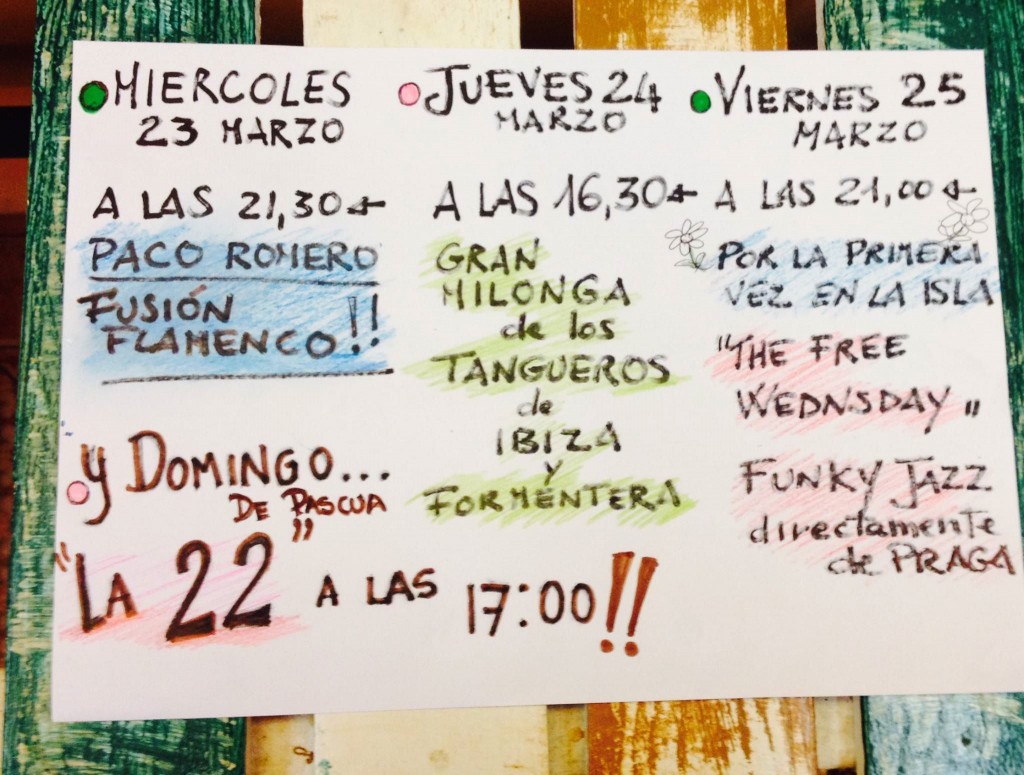 MIERCOLES
23 MARZO
A LAS 21,30
PACO ROMERO
FUSIÓN
FLAMENCO!!
JUEVES 24
MARZO
A LAS 16,30
GRAN
MILONGA
de los
TANGUEROS
de
IBIZA
Y
FORMENTERA
VIERNES 25
MARZO
A LAS 21,00
POR LA PRIMERA
VEZ EN LA ISLA
"THE FREE
WEDNSDAY"
FUNKY JAZZ
directamente
de PRAGA
Y DOMINGO...
DE PASCUA
"LA 22" A LAS 17:00!!